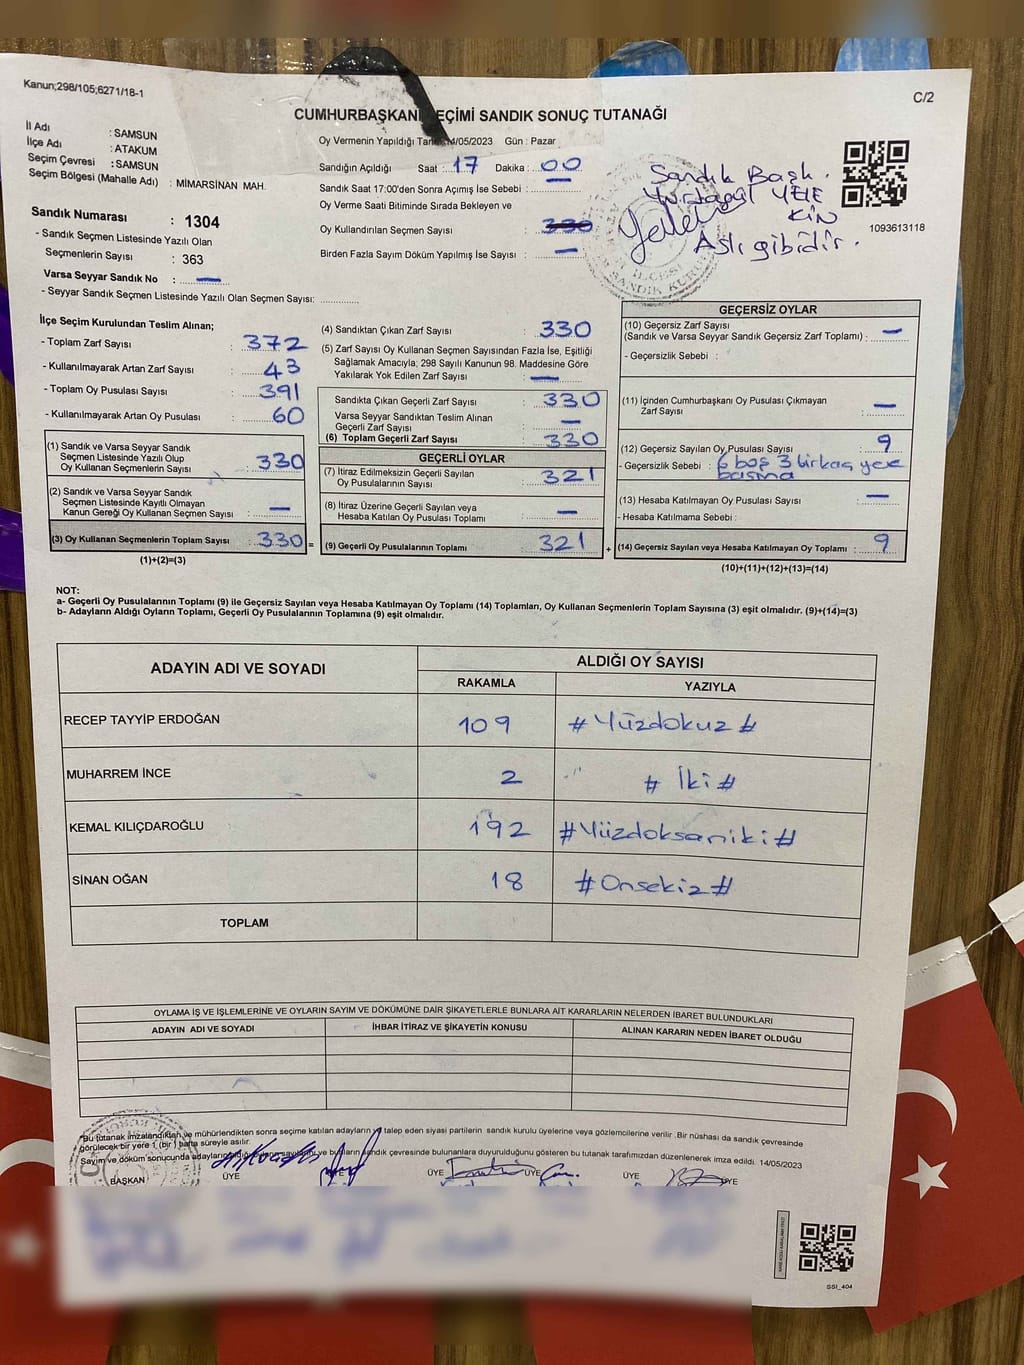 Kanun;298/105;6271/18-1
C/2
CUMHURBAŞKANI SEÇİMİ SANDIK SONUÇ TUTANAĞI
İl Adı : SAMSUN
İlçe Adı : ATAKUM
Seçim Çevresi : SAMSUN
Seçim Bölgesi (Mahalle Adı) : MİMARSİNAN MAH.
Sandık Numarası : 1304
- Sandık Seçmen Listesinde Yazılı Olan
Seçmenlerin Sayısı : 363
Varsa Seyyar Sandık No : —
- Seyyar Sandık Seçmen Listesinde Yazılı Olan Seçmen Sayısı: ............
Oy Vermenin Yapıldığı Tarih 14/05/2023 Gün : Pazar
Sandığın Açıldığı Saat : 17 Dakika : 00
Sandık Saat 17:00'den Sonra Açımış İse Sebebi :
Oy Verme Saati Bitiminde Sırada Bekleyen ve
Oy Kullandırılan Seçmen Sayısı : 330
Birden Fazla Sayım Döküm Yapılmış İse Sayısı : —
Sandık Başk.
Aslı gibidir.
1093613118
İlçe Seçim Kurulundan Teslim Alınan;
- Toplam Zarf Sayısı : 372
- Kullanılmayarak Artan Zarf Sayısı : 43
- Toplam Oy Pusulası Sayısı : 391
- Kullanılmayarak Artan Oy Pusulası : 60
(1) Sandık ve Varsa Seyyar Sandık
Seçmen Listesinde Yazılı Olup
Oy Kullanan Seçmenlerin Sayısı : 330
(2) Sandık ve Varsa Seyyar Sandık
Seçmen Listesinde Kayıtlı Olmayan
Kanun Gereği Oy Kullanan Seçmen Sayısı : —
(3) Oy Kullanan Seçmenlerin Toplam Sayısı : 330 =
(1)+(2)=(3)
(4) Sandıktan Çıkan Zarf Sayısı : 330
(5) Zarf Sayısı Oy Kullanan Seçmen Sayısından Fazla İse, Eşitliği
Sağlamak Amacıyla; 298 Sayılı Kanunun 98. Maddesine Göre
Yakılarak Yok Edilen Zarf Sayısı : —
Sandıkta Çıkan Geçerli Zarf Sayısı : 330
Varsa Seyyar Sandıktan Teslim Alınan
Geçerli Zarf Sayısı : —
(6) Toplam Geçerli Zarf Sayısı : 330
GEÇERLİ OYLAR
(7) İtiraz Edilmeksizin Geçerli Sayılan
Oy Pusulalarının Sayısı : 321
(8) İtiraz Üzerine Geçerli Sayılan veya
Hesaba Katılan Oy Pusulası Toplamı : —
(9) Geçerli Oy Pusulalarının Toplamı : 321 +
GEÇERSİZ OYLAR
(10) Geçersiz Zarf Sayısı
(Sandık ve Varsa Seyyar Sandık Geçersiz Zarf Toplamı) : —
- Geçersizlik Sebebi :
(11) İçinden Cumhurbaşkanı Oy Pusulası Çıkmayan
Zarf Sayısı : —
(12) Geçersiz Sayılan Oy Pusulası Sayısı : 9
- Geçersizlik Sebebi : 6 boş 3 birkaç yere
basma
(13) Hesaba Katılmayan Oy Pusulası Sayısı : —
- Hesaba Katılmama Sebebi :
(14) Geçersiz Sayılan veya Hesaba Katılmayan Oy Toplamı : 9
(10)+(11)+(12)+(13)=(14)
NOT:
a- Geçerli Oy Pusulalarının Toplamı (9) ile Geçersiz Sayılan veya Hesaba Katılmayan Oy Toplamı (14) Toplamları, Oy Kullanan Seçmenlerin Toplam Sayısına (3) eşit olmalıdır. (9)+(14)=(3)
b- Adayların Aldığı Oyların Toplamı, Geçerli Oy Pusulalarının Toplamına (9) eşit olmalıdır.
ADAYIN ADI VE SOYADI
ALDIĞI OY SAYISI
RAKAMLA YAZIYLA
RECEP TAYYİP ERDOĞAN 109 # Yüzdokuz #
MUHARREM İNCE 2 # İki #
KEMAL KILIÇDAROĞLU 192 #Yüzdoksaniki#
SİNAN OĞAN 18 #Onsekiz#
TOPLAM
OYLAMA İŞ VE İŞLEMLERİNE VE OYLARIN SAYIM VE DÖKÜMÜNE DAİR ŞİKAYETLERLE BUNLARA AİT KARARLARIN NELERDEN İBARET BULUNDUKLARI
ADAYIN ADI VE SOYADI İHBAR İTİRAZ VE ŞİKAYETİN KONUSU ALINAN KARARIN NEDEN İBARET OLDUĞU
"Bu tutanak imzalandıktan ve mühürlendikten sonra seçime katılan adayların talep eden siyasi partilerin sandık kurulu üyelerine veya gözlemcilerine verilir .Bir nüshası da sandık çevresinde
görülecek bir yere 1 (bir ) hafta süreyle asılır.
Sayım ve döküm sonucunda adayların sandık çevresinde bulunanlara duyurulduğunu gösteren bu tutanak tarafımızdan düzenlenerek imza edildi. 14/05/2023
BAŞKAN ÜYE ÜYE ÜYE ÜYE ÜYE ÜYE
SSI_404